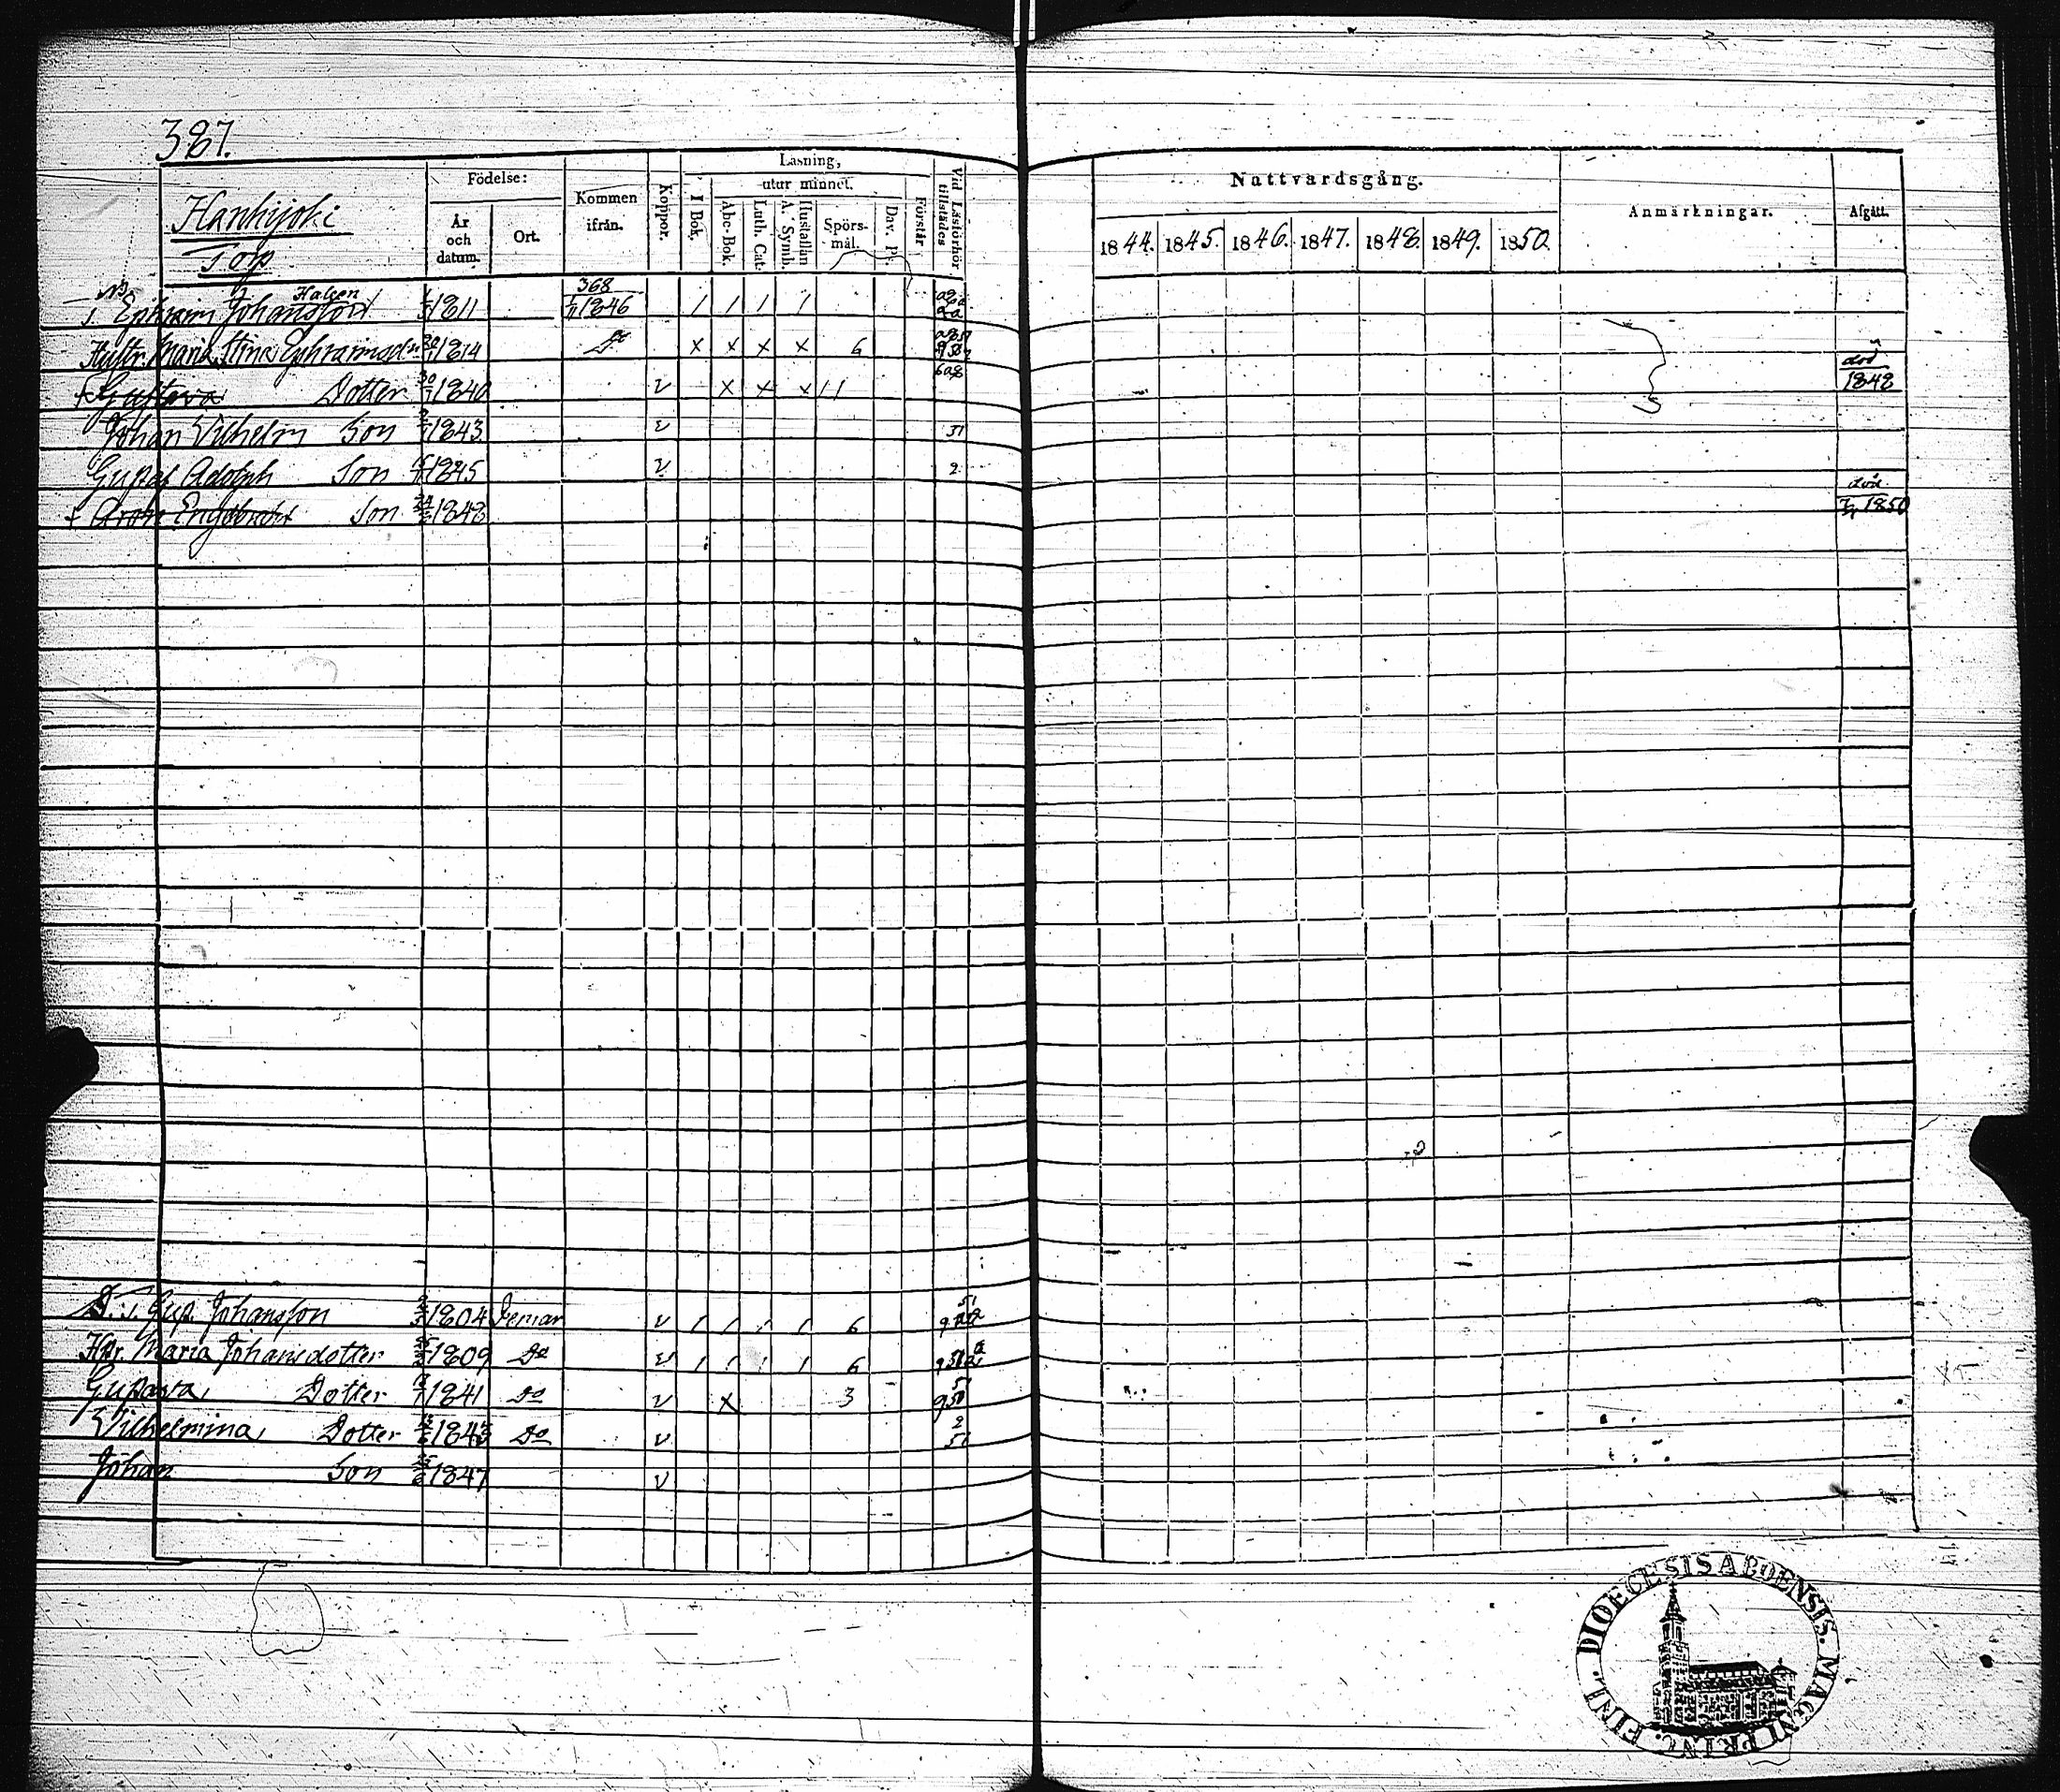 387.
Hanhijoki
Torp
Födelse:
År och datum.
Ort.
Kommen ifrån.
Koppor.
Läsning,
utur minnet.
I Bok.
Abc-Bok.
Luth. Cat.
A. Symb.
Hustaflan
Spörsmål.
Dav. Ps.
Förstår
Vid Läsförhör tillstädes
Nattvardsgång.
1844. 1845. 1846. 1847. 1848. 1849. 1850.
Anmärkningar.
Afgått.
T. Ephraim Johansson 1811 368 1846 / / / /
Hustr. Maria Stina Ephraimsdr 1814 Do x x x x 6
död 1848
† Gustava Dotter 30 1840 v x x x 11
Johan Vilhelm Son 1843 v 51
Gustaf Adolph Son 1845 v 2
död 1850
† Engelbrekt Son 24 1848
Gust. Johansson 1804 Pemar v / / / / 6
Hstr. Maria Johansdotter 1809 Do v / / / / 6
Gustava Dotter 1841 Do v x 3
Vilhelmina Dotter 1843 Do v 2 51
Johan Son 1847 v
FINL. DIOECESIS ABOENSIS. MAGNI PRINC.